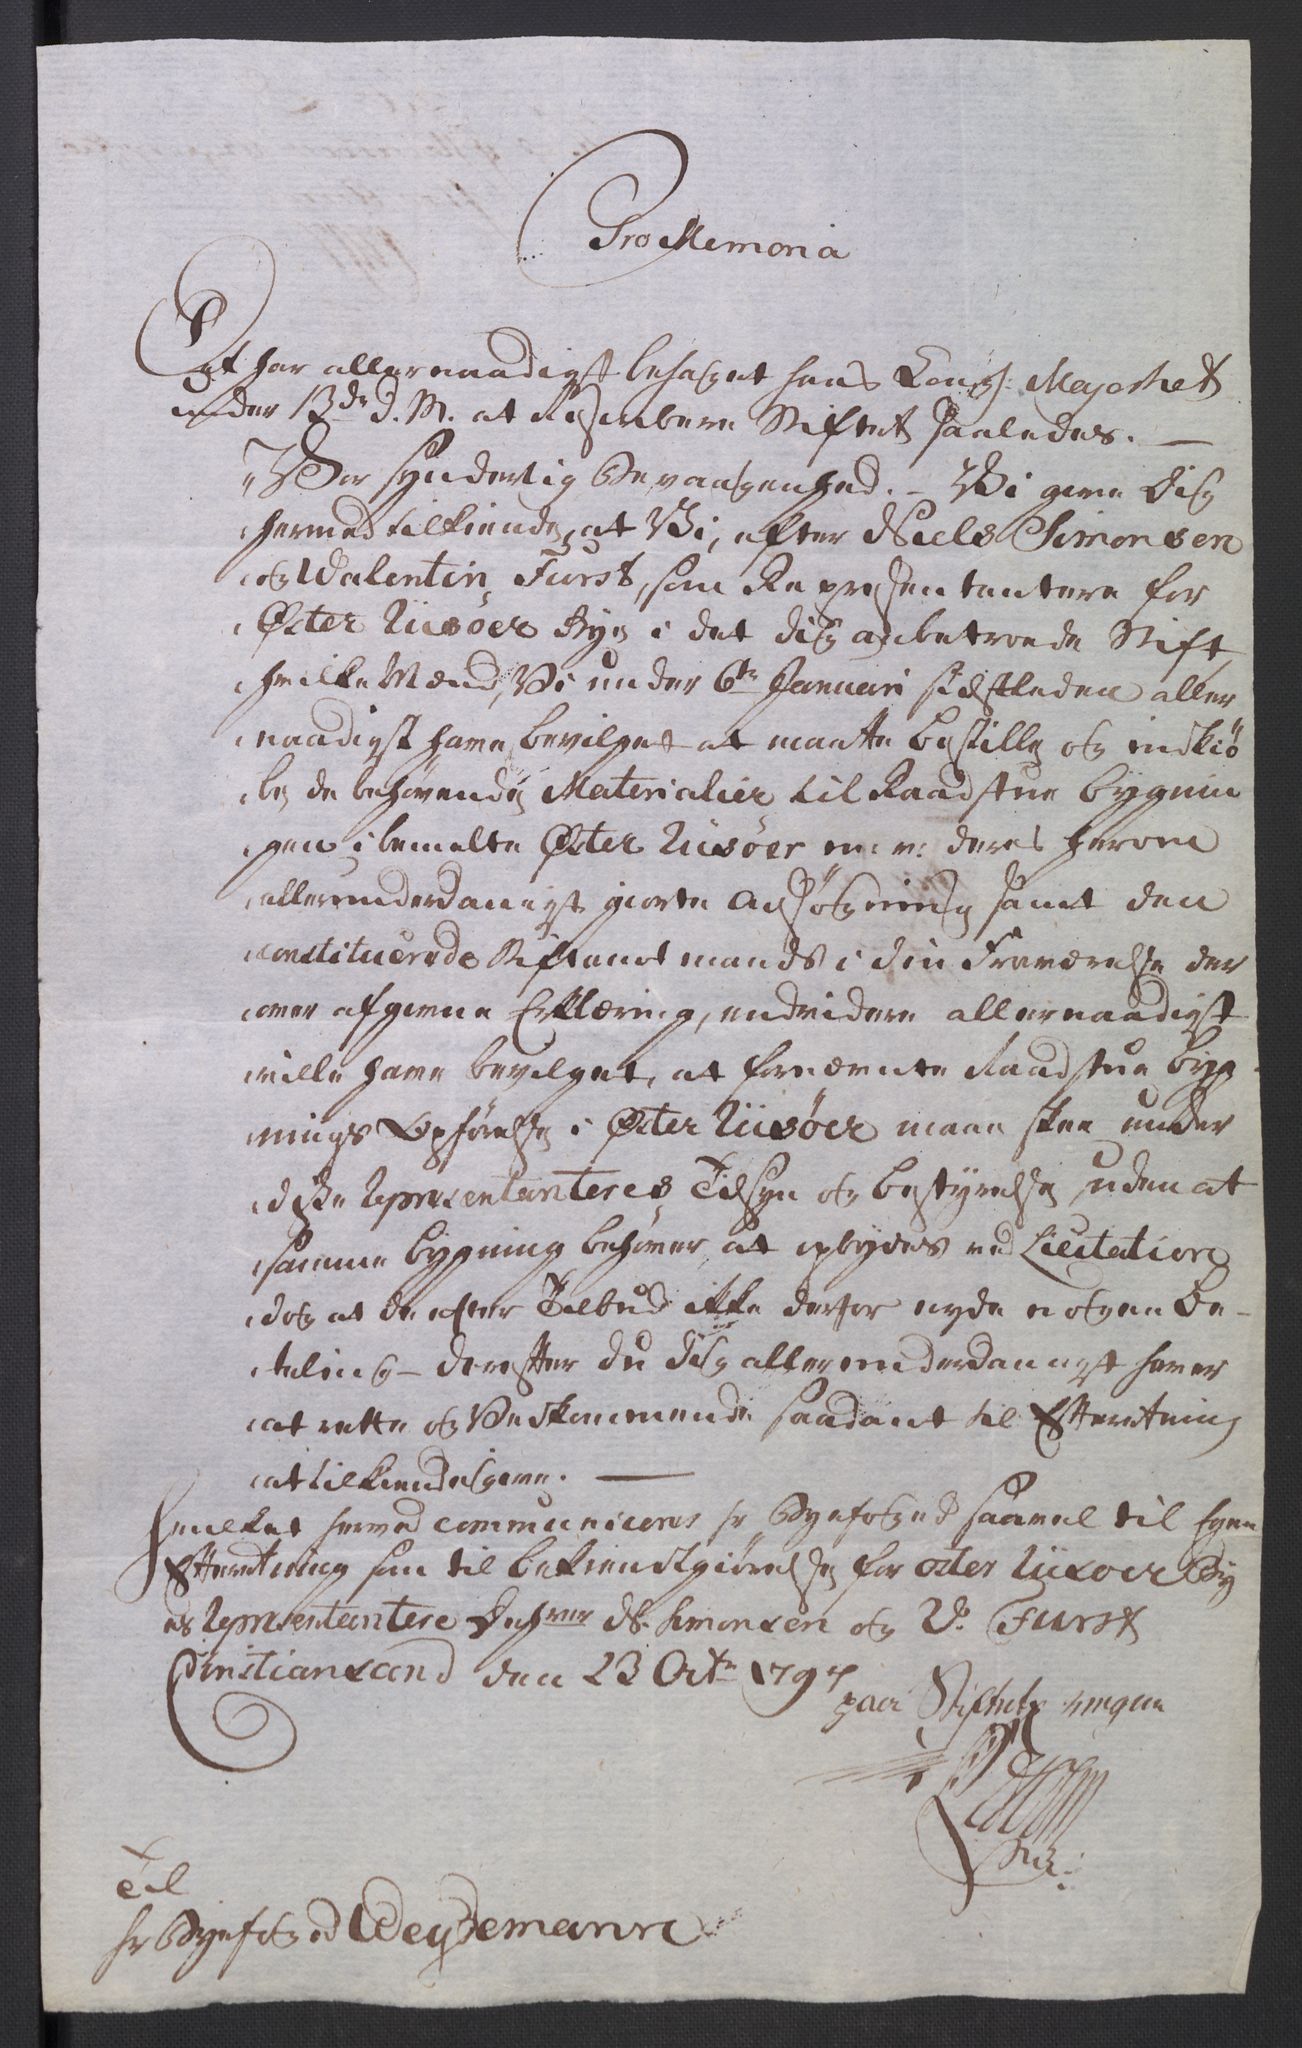 Pro Memoria
Det har allernaadigst behaget hans Kongl: Majestet
under 13de d. M. at rescribere Stiftet saaledes. —
"Vor synderlig Bevaagenhed. – Vi give Dig
hermed tilkiende, at Vi, efter Niels Simonsen
og Walentin Furst, som Repræsentantere for
Øster Riisöer Bye i det dig anbetroede Stift
hvilke Mænd, Vi under 6te Januari sidstleden aller
naadigst have bevilget at maatte bestille og indkiö
be de behøvende Materialier til Raadstue bygnin
gen i bemelte Øster Riisöer m. v: deres herom
allerunderdanigst giorte Ansögning samt den
constituerede Stiftamtmands i din Fraværelse der
over afgivne Erklæring, endvidere allernaadigst
ville have bevilget, at fornævnte Raadstue byg
nings Opförelse i Øster Riisöer maae skee under
disse Repræsentanteres Tilsyn og bestyrelse, uden at
samme bygning behøver at opbydes ved Licitation
dog at de efter Tilbud ikke derfor nyde nogen Be-
taling – derefter du dig allerunderdanigst haver
at rette og Vedkommende saadant til Efterretning
at tilkiendegive. —
Hvilket herved communiceres hr Byefoged saavel til Egen
Efterretning som til bekiendtgiörelse for Oster Riisoer By
es Repræsentantere N. Simonsen og V. Furst
Christiansand den 23 Octbr 179
paa Stiftets vegne
Til
hr Byefoged Weydemann